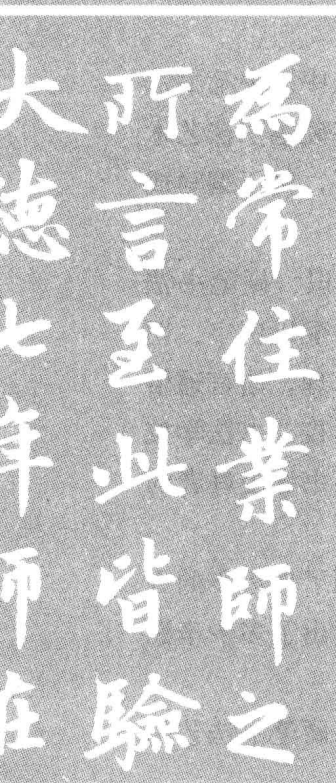 為常住業師之
所言至此皆驗
大德七年師在